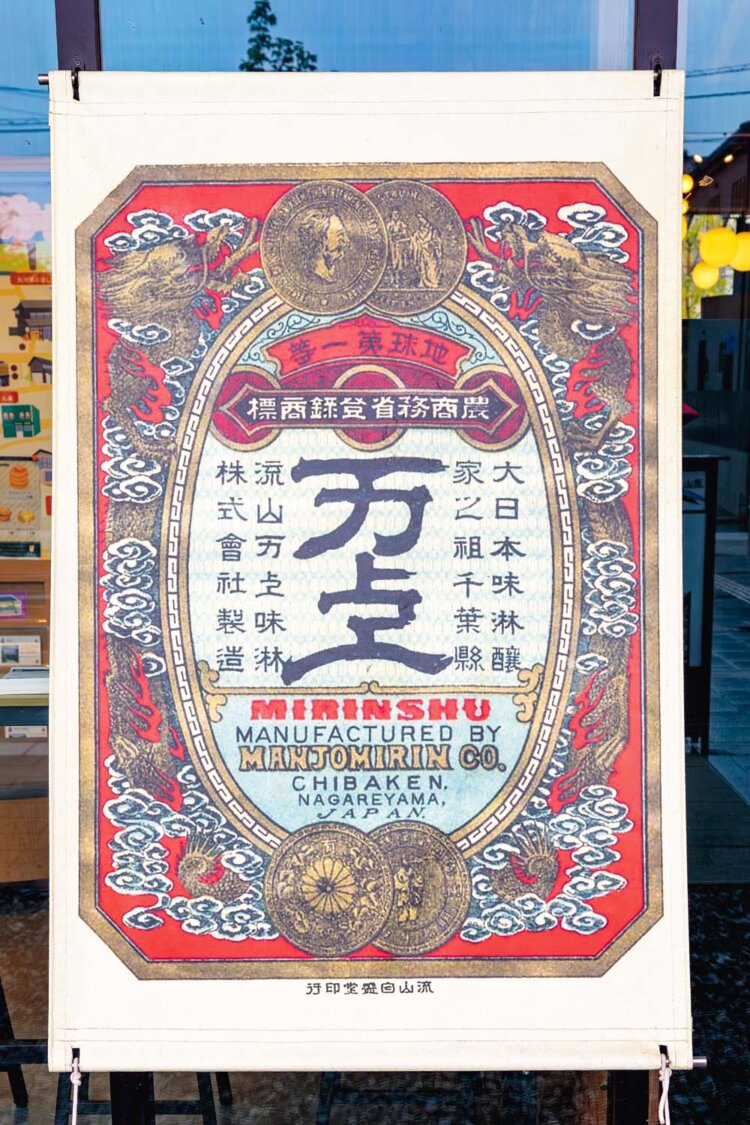 地球第一等
農商務省登錄商標
大日本味淋釀
家之祖千葉縣
万上
流山万上味淋
株式會社製造
MIRINSHU
MANUFACTURED BY
MANJOMIRIN CO.
CHIBAKEN,
NAGAREYAMA,
JAPAN.
流山回盛堂印行